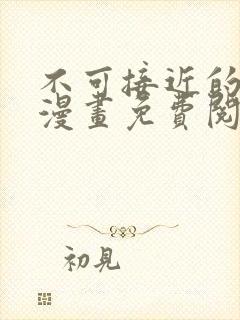 不可接近的
漫畫免費閱
初見